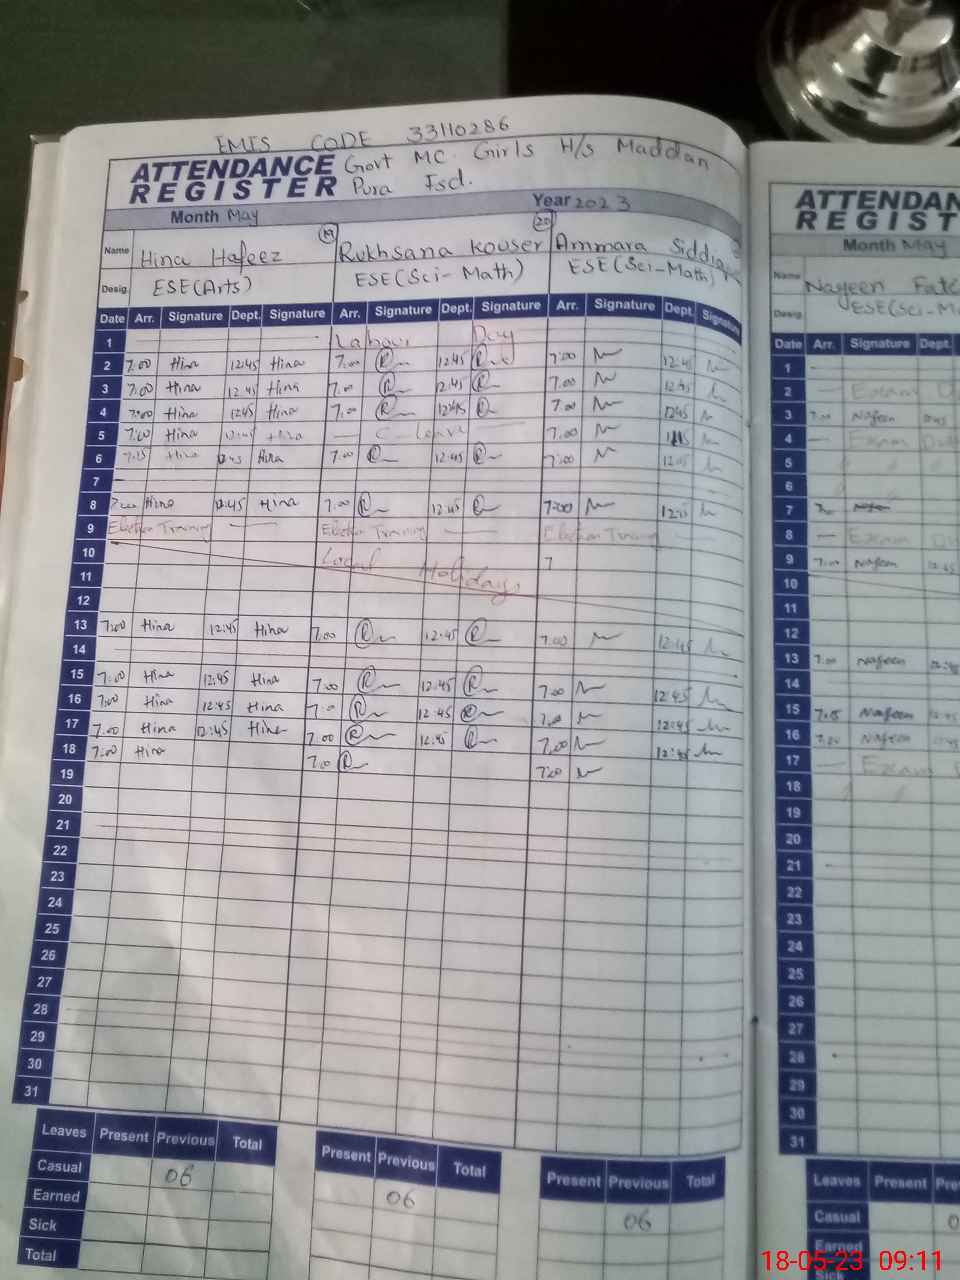 EMIS CODE 33110286
ATTENDANCE Govt MC. Girls H/s Maddan
REGISTER Pura Fsd.
Month May Year 2023
19 20
Name Hina Hafeez Rukhsana Kouser Ammara
Desig. ESE(Arts) ESE(Sci-Math) ESE(Sci-Math)
Date Arr. Signature Dept. Signature Arr. Signature Dept. Signature Arr. Signature Dept. Signature
1 Labour Day
2 7:00 Hina 12:45 Hina 7:00 R 12:45 R 7:00 12:45
3 7:00 Hina 12:45 Hina 7:00 R 12:45 R 7:00 12:45
4 7:00 Hina 12:45 Hina 7:00 R 12:45 R 7:00 12:45
5 7:00 Hina 12:45 Hina — C. Leave — 7:00
6 7:15 Hina 12:45 Hina 7:00 R 12:45 R 7:00 12:45
7
8 Hina 12:45 Hina 7:00 R 12:45 R 7:00
9 Election Training — Election Training — Election Training
10 Local Holidays
11
12
13 7:00 Hina 12:45 Hina 7:00 R 12:45 R 7:00 12:45
14
15 7:00 Hina 12:45 Hina 7:00 R 12:45 R 7:00 12:45
16 7:00 Hina 12:45 Hina 7:00 R 12:45 R 7:00 12:45
17 7:00 Hina 12:45 Hina 7:00 R 12:45 R 7:00 12:45
18 7:00 Hina 7:00 R 7:00
19
20
21
22
23
24
25
26
27
28
29
30
31
Leaves Present Previous Total Present Previous Total Present Previous Total
Casual 06 06 06
Earned
Sick
Total
ATTENDAN
REGIST
Month May
Name Nayeen
ESE(Sci-M
Date Arr. Signature Dept.
1
2 Exam
3 7:00 Nafeen
4 — Exam
5
6
7
8 — Exam
9 7:00 Nafeen 12:45
10
11
12
13 7:00 Nafeen
14
15 7:15 Nafeen
16 7:00 Nafeen
17 — Exam
18
19
20
21
22
23
24
25
26
27
28
29
30
31
Leaves Present Pre
Casual 0
Earned
Sick
18-05-23 09:11